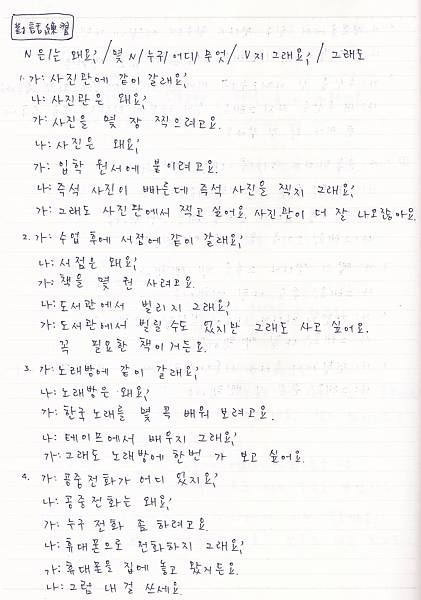 對話練習
N은/는 왜요?/몇 N/누구/어디/무엇/V지 그래요?/그래도
1. 가: 사진관에 같이 갈래요?
나: 사진관은 왜요?
가: 사진을 몇 장 찍으려고요.
나: 사진은 왜요?
가: 입학 원서에 붙이려고요.
나: 즉석 사진이 빠른데 즉석 사진을 찍지 그래요?
가: 그래도 사진관에서 찍고 싶어요. 사진관이 더 잘 나오잖아요.
2. 가: 수업 후에 서점에 같이 갈래요?
나: 서점은 왜요?
가: 책을 몇 권 사려고요.
나: 도서관에서 빌리지 그래요?
가: 도서관에서 빌릴 수도 있지만 그래도 사고 싶어요.
꼭 필요한 책이거든요.
3. 가: 노래방에 같이 갈래요?
나: 노래방은 왜요?
가: 한국 노래를 몇 곡 배워 보려고요.
나: 테이프에서 배우지 그래요?
가: 그래도 노래방에 한번 가 보고 싶어요.
4. 가: 공중전화가 어디 있지요?
나: 공중전화는 왜요?
가: 누구 전화 좀 하려고요.
나: 휴대폰으로 전화하지 그래요?
가: 휴대폰을 집에 놓고 왔거든요.
나: 그럼 내 걸 쓰세요.